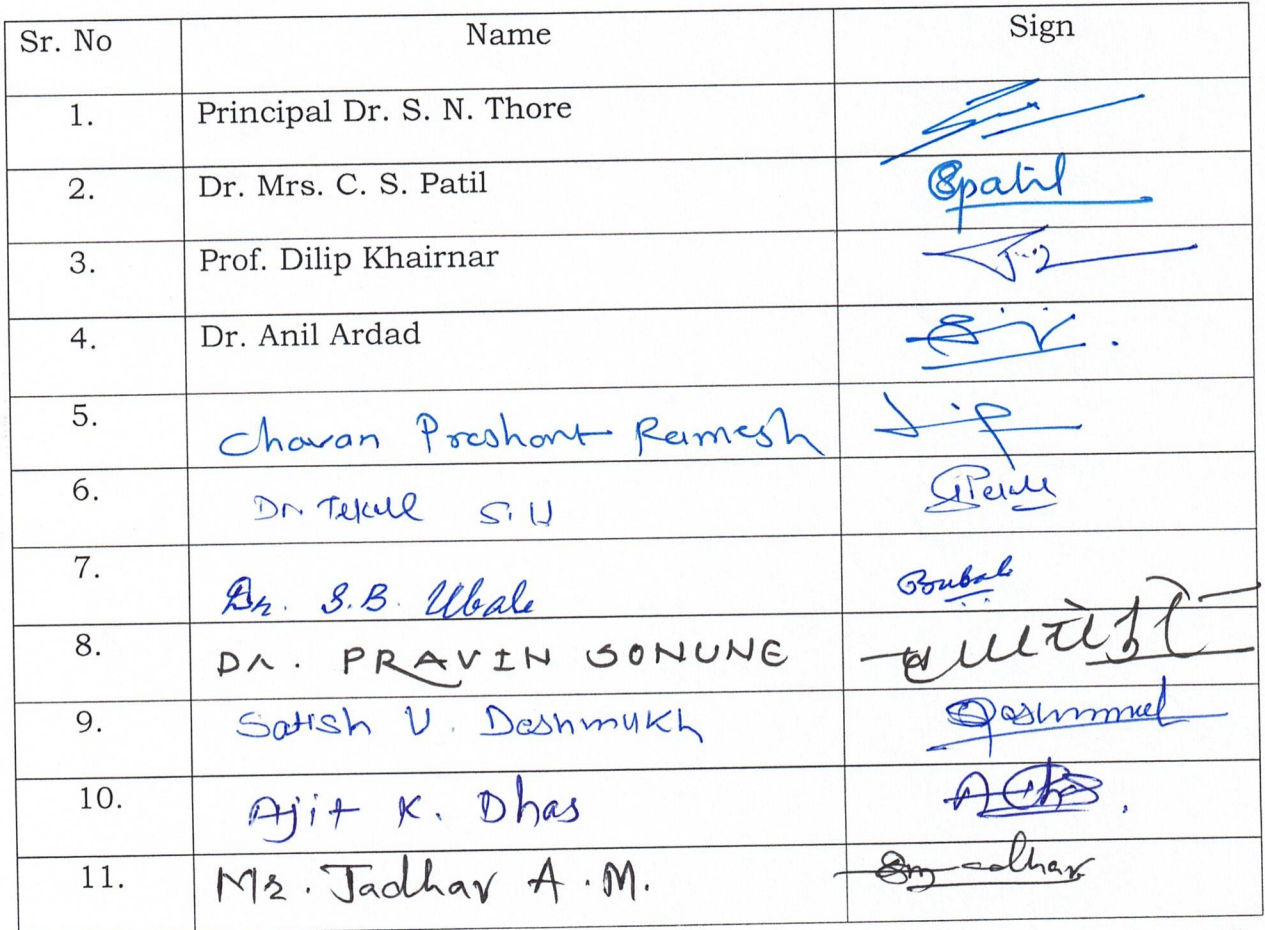 Sr. No Name Sign
1. Principal Dr. S. N. Thore
2. Dr. Mrs. C. S. Patil Spatil
3. Prof. Dilip Khairnar
4. Dr. Anil Ardad
5. Chavan Prashant Ramesh
6. Dr. Tekale S. U
7. Dr. S.B. Ubale
8. Dr. PRAVIN SONUNE
9. Satish U. Deshmukh
10. Ajit K. Dhas
11. Mr. Jadhav A.M.